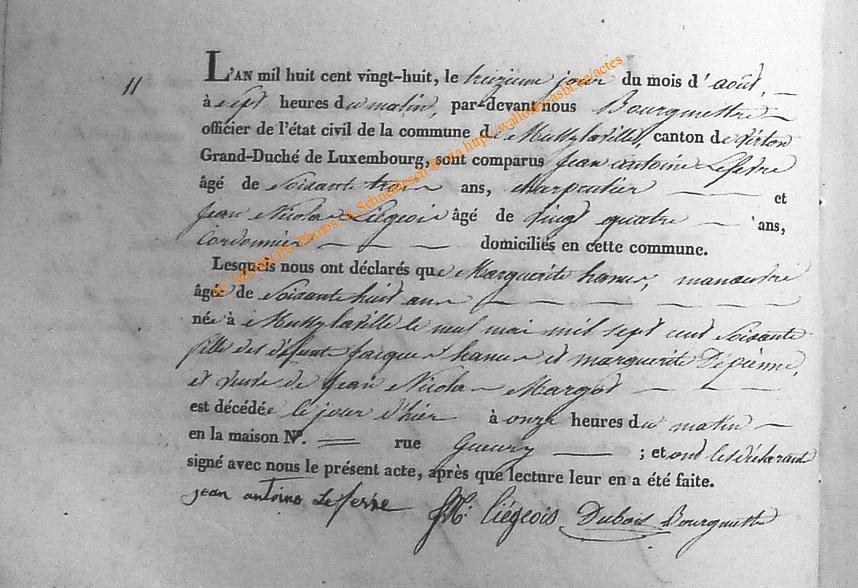 11
L'AN mil huit cent vingt-huit, le treizieme jour du mois d'août,
à sept heures du matin, par-devant nous Bourguette
officier de l'état civil de la commune de Mussylaville, canton de virton
Grand-Duché de Luxembourg, sont comparus Jean antoine Lefebre
âgé de Soixante trois ans, charpentier et
Jean Nicolas Liégeois âgé de vingt quatre ans,
Cordonnier domiciliés en cette commune.
Lesquels nous ont déclarés que Marguerite hanus, manoeuvre
âgée de Soixante huit ans
née à Mussylaville le neuf mai mil sept cent Soixante
fille des défunts Jacques hanus et marguerite Depienne,
et veuve de Jean Nicolas Margot
est décédée le jour d'hier à onze heures du matin
en la maison N°. rue Gueury ; et ont les déclarants
signé avec nous le présent acte, après que lecture leur en a été faite.
jean antoine Lefevre JN. Liégeois Dubois Bourguette
AC MUSSON- Photos: A. Schneidesch et via http://wallonia-asbl.eu/actes